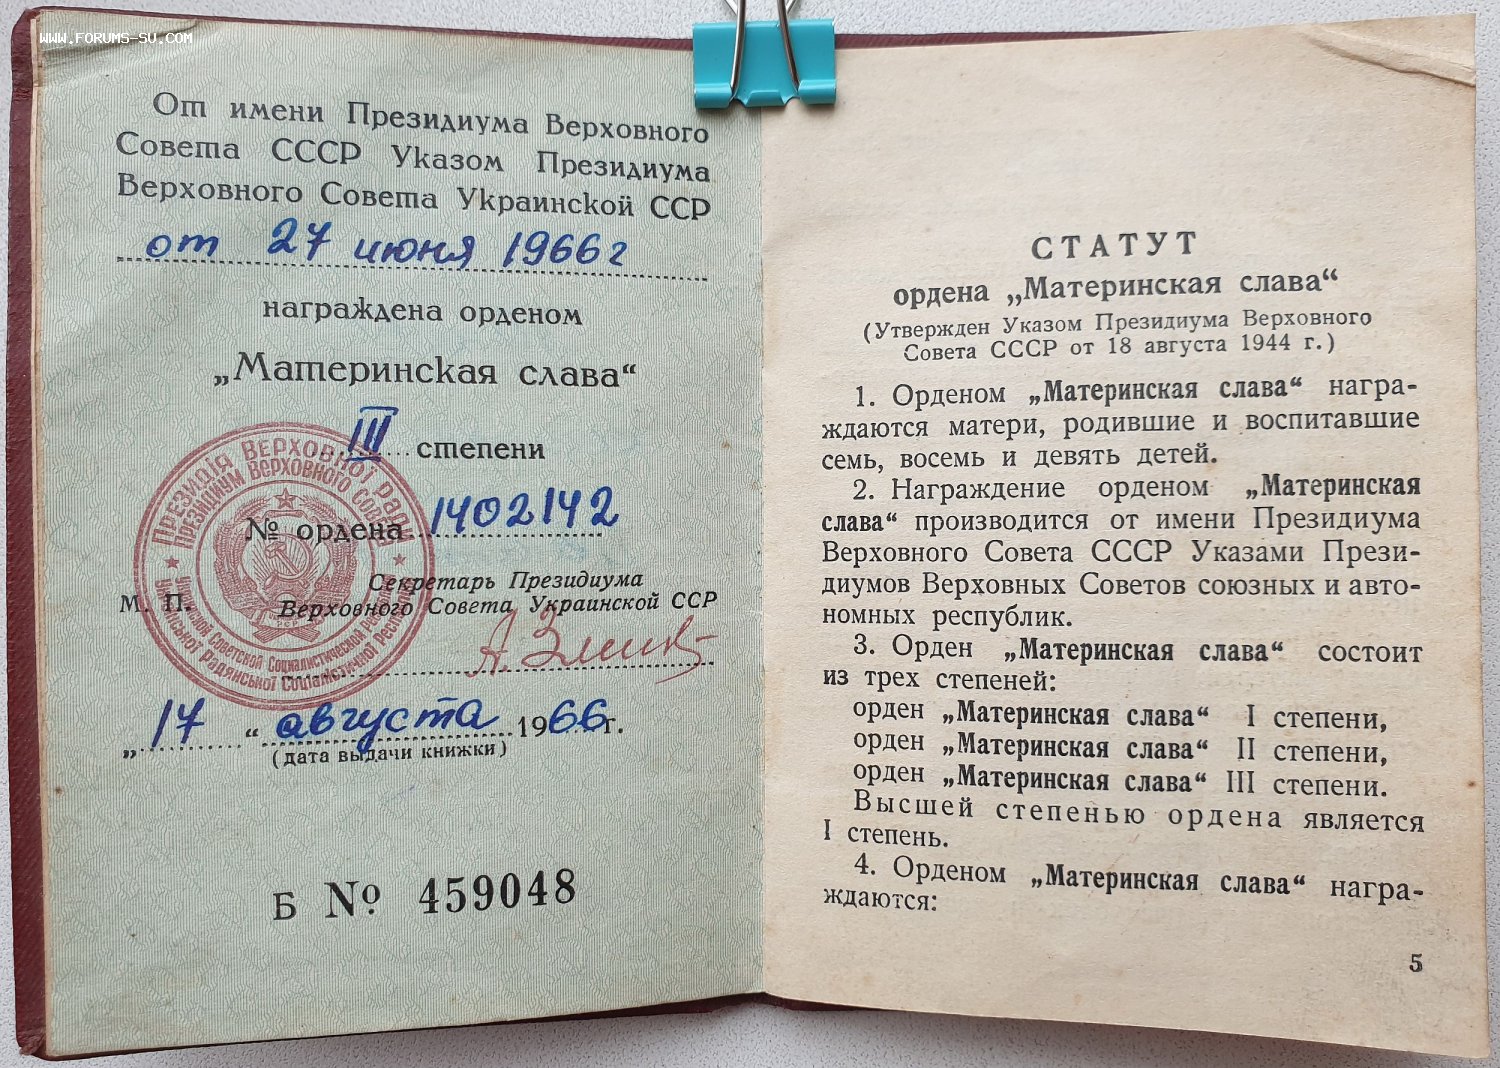 www.forums-su.com
От имени Президиума Верховного
Совета СССР Указом Президиума
Верховного Совета Украинской ССР
от 27 июня 1966 г
награждена орденом
„Материнская слава“
III степени
№ ордена 1402142
Секретарь Президиума
М. П. Верховного Совета Украинской ССР
„17“ августа 1966 г.
(дата выдачи книжки)
Б № 459048
Президія Верховної Ради
Президиум Верховного Совета
Советской Социалистической
Радянської Соціалістичної
СТАТУТ
ордена „Материнская слава“
(Утвержден Указом Президиума Верховного
Совета СССР от 18 августа 1944 г.)
1. Орденом „Материнская слава“ награ-
ждаются матери, родившие и воспитавшие
семь, восемь и девять детей.
2. Награждение орденом „Материнская
слава“ производится от имени Президиума
Верховного Совета СССР Указами Прези-
диумов Верховных Советов союзных и авто-
номных республик.
3. Орден „Материнская слава“ состоит
из трех степеней:
орден „Материнская слава“ I степени,
орден „Материнская слава“ II степени,
орден „Материнская слава“ III степени.
Высшей степенью ордена является
I степень.
4. Орденом „Материнская слава“ награ-
ждаются:
5